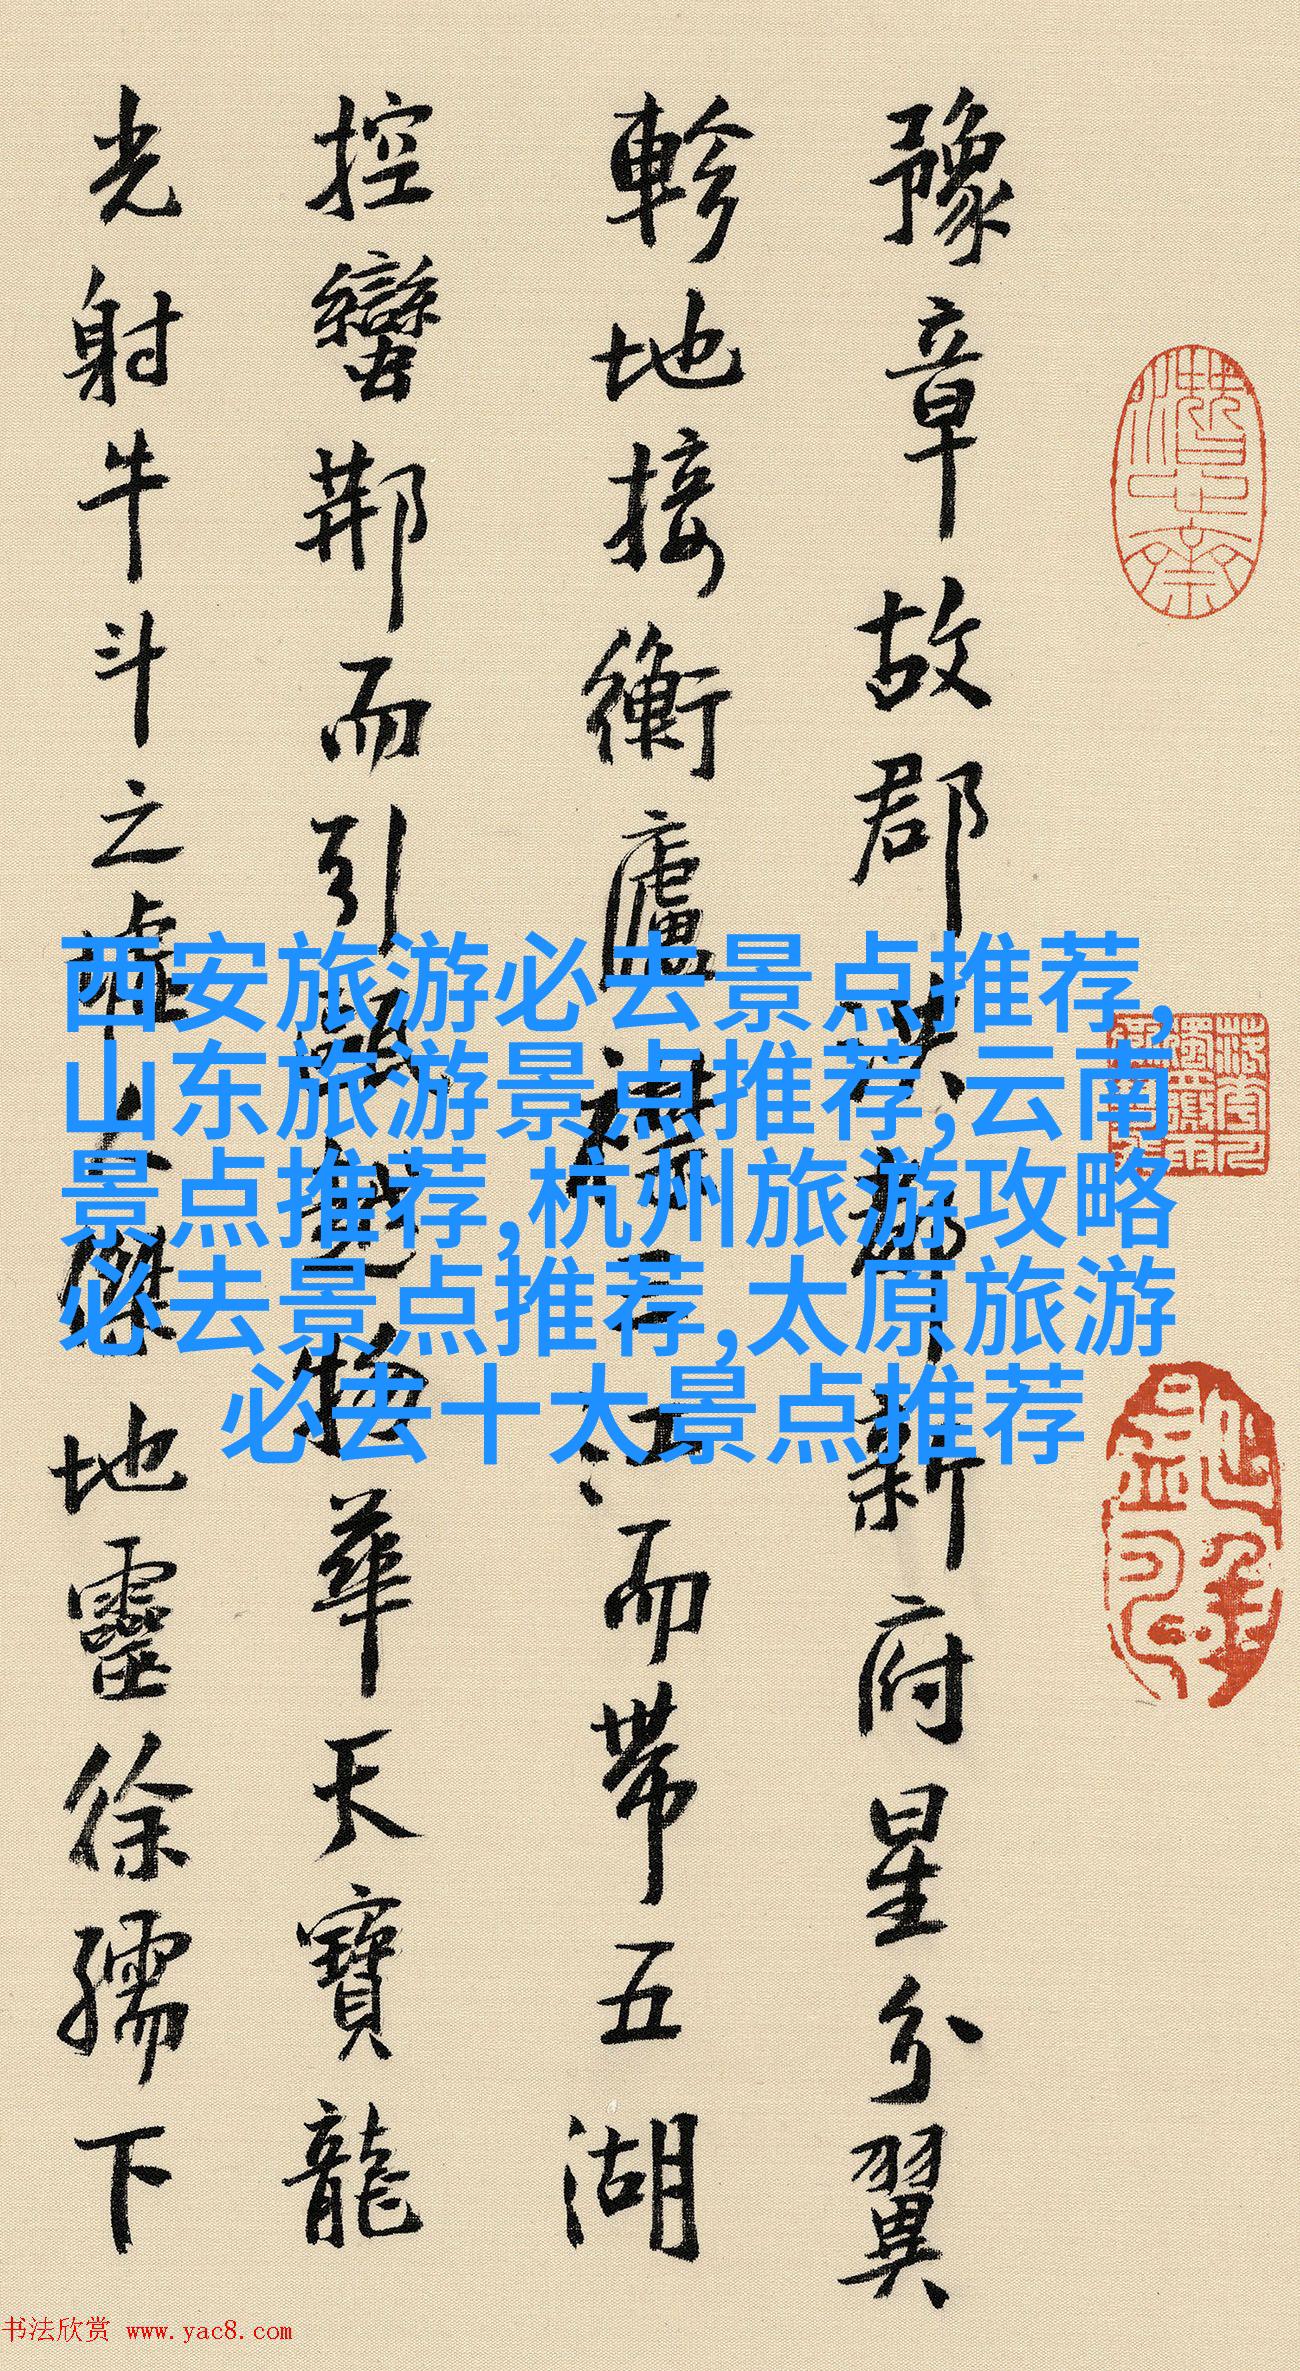 豫章故郡洪都新府星分翼
軫地接衡廬襟三江而帶五湖
控蠻荊而引甌越物華天寶龍
光射牛斗之墟人傑地靈徐孺下
西安旅游必去景点推荐,
山东旅游景点推荐,云南
景点推荐,杭州旅游攻略
必去景点推荐,太原旅游
必去十大景点推荐
书法欣赏 www.yac8.com